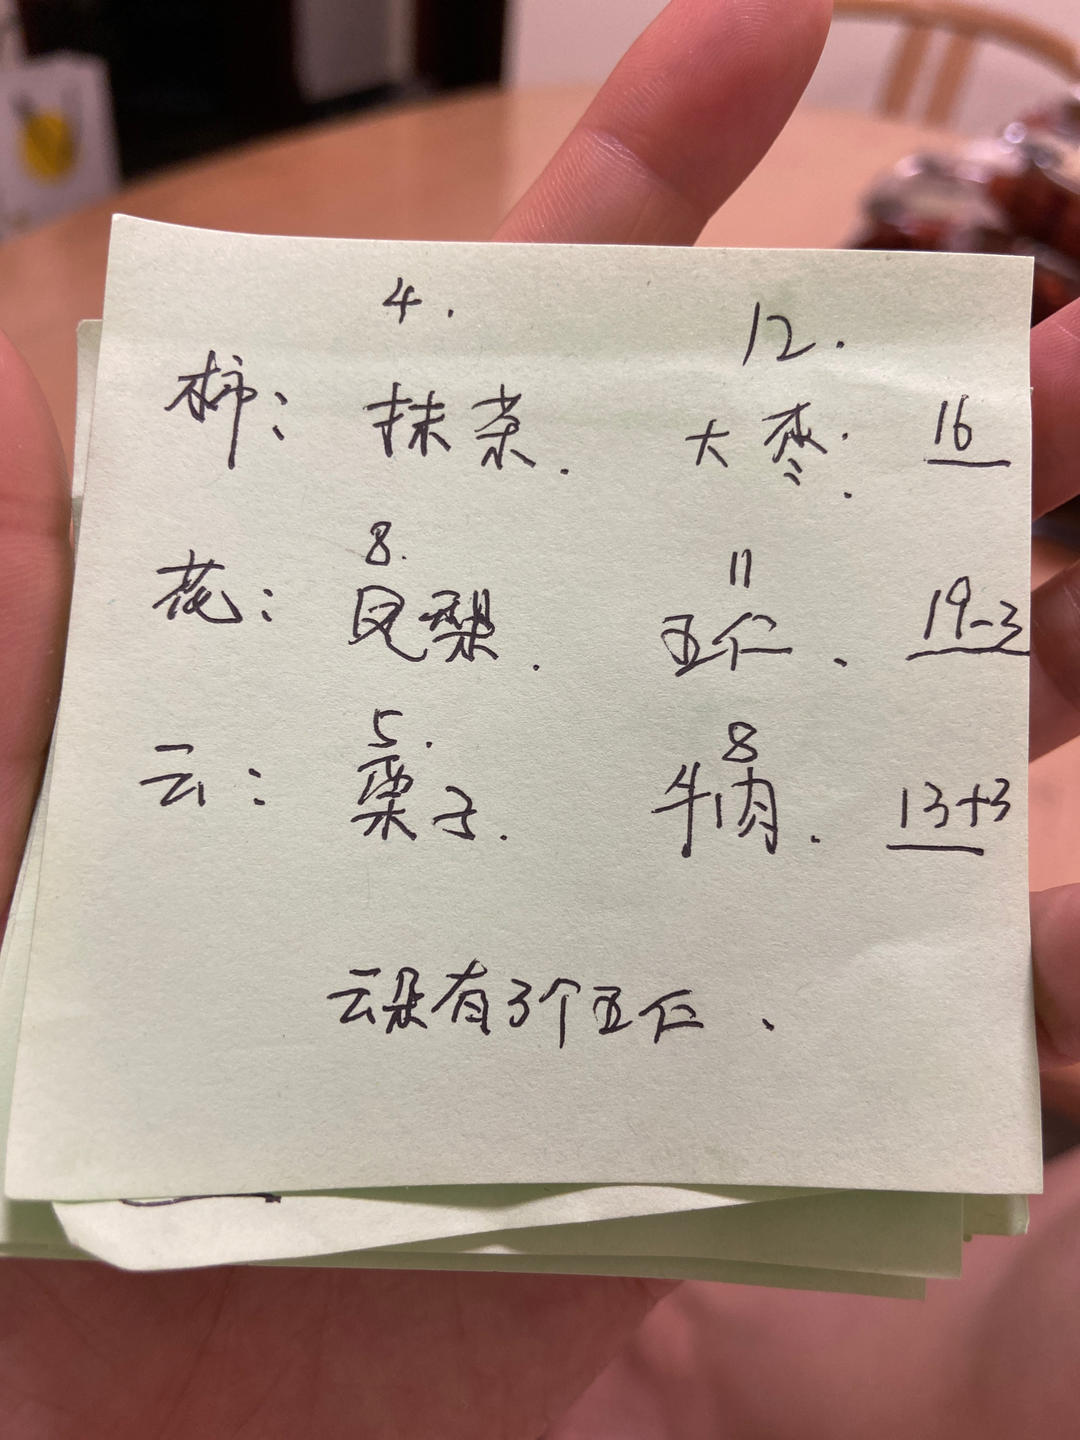 4. 12.
柿: 抹茶. 大枣. 16
8. 11
花: 凤梨. 五仁. 19-3
5. 8
云: 栗子. 牛肉. 13+3
云朵有3个五仁.